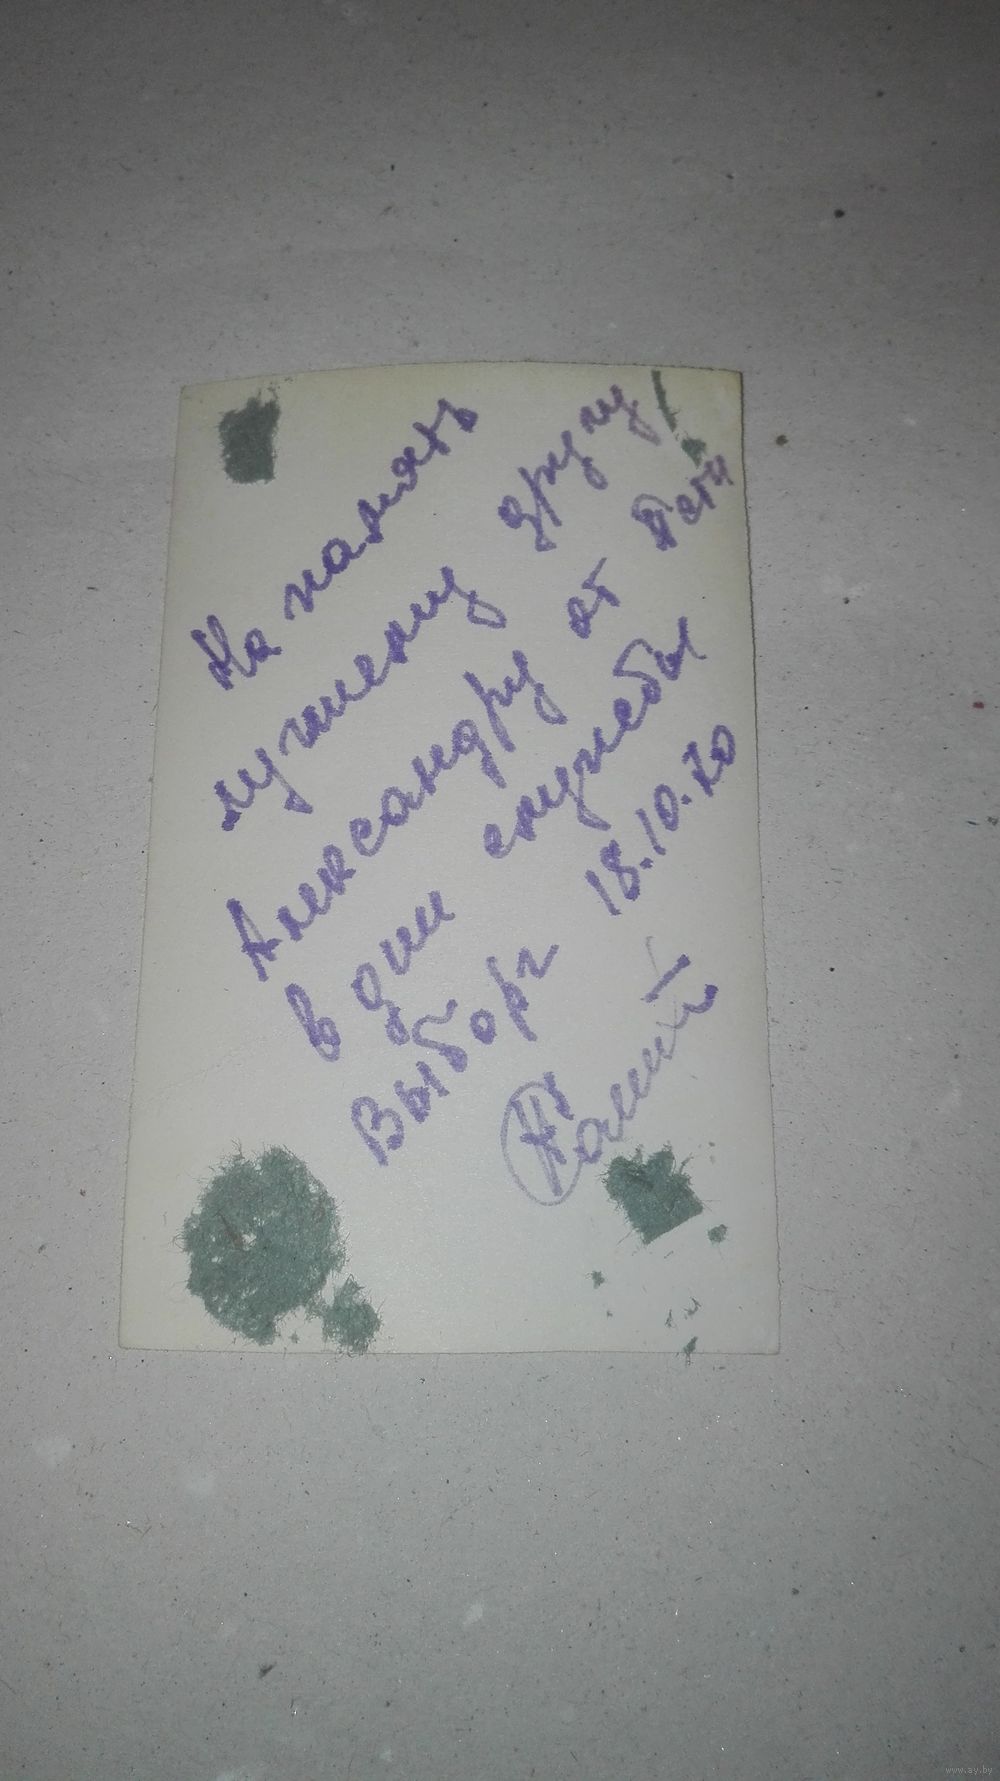 На память
лучшему другу
Александру от Пети
в дни службы
Выборг 18.10.70
www.ay.by